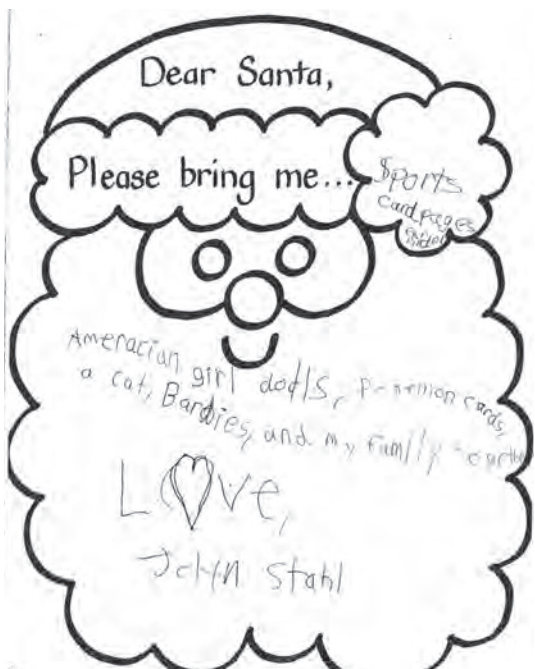 Dear Santa,
Please bring me...
Sports
card pages
Ameracian girl dolls, Pokemon cards,
a cat, Barbies, and my family
LOVE,
Stahl